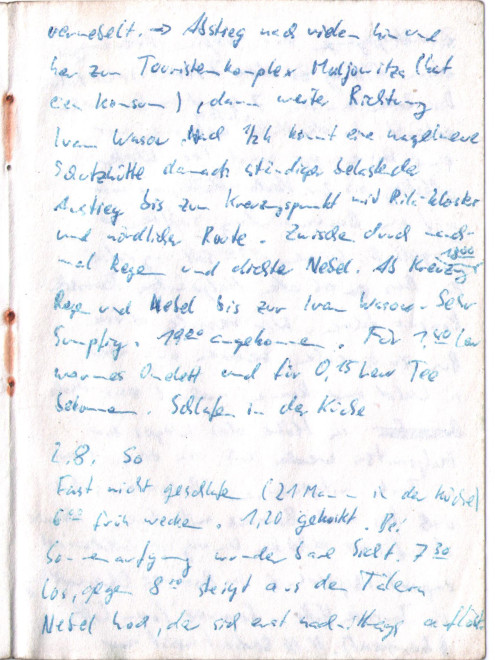 vernebelt. → Abstieg nach vielen hin und
her zum Touristenkomplex Maljowitza (hat
einen Konsum), dann weiter Richtung
Ivan Wasow. Nach 1/2h kommt eine nagelneue
Schutzhütte danach ständiger
Anstieg bis zum Kreuzungspunkt mit Rila-Kloster
und nördlicher Route. Zwischendurch manch-
mal Regen und dichter Nebel. Ab Kreuzung 18:00
Regen und Nebel bis zur Ivan Wasow. Sehr
Sumpfig. 19:00 angekommen. Für 1,40 Lew
warmes Omelett und für 0,15 Lew Tee
bekommen. Schlafen in der Küche
2.8. So
Fast nicht geschlafen (21 Mann in der Küche)
6:00 früh wecken. 1,20 gekostet. Bei
Sonnenaufgang wunderbare Sicht. 7:30
los, gegen 8:10 steigt aus den Tälern
Nebel hoch, der sich erst nachmittags auflöst